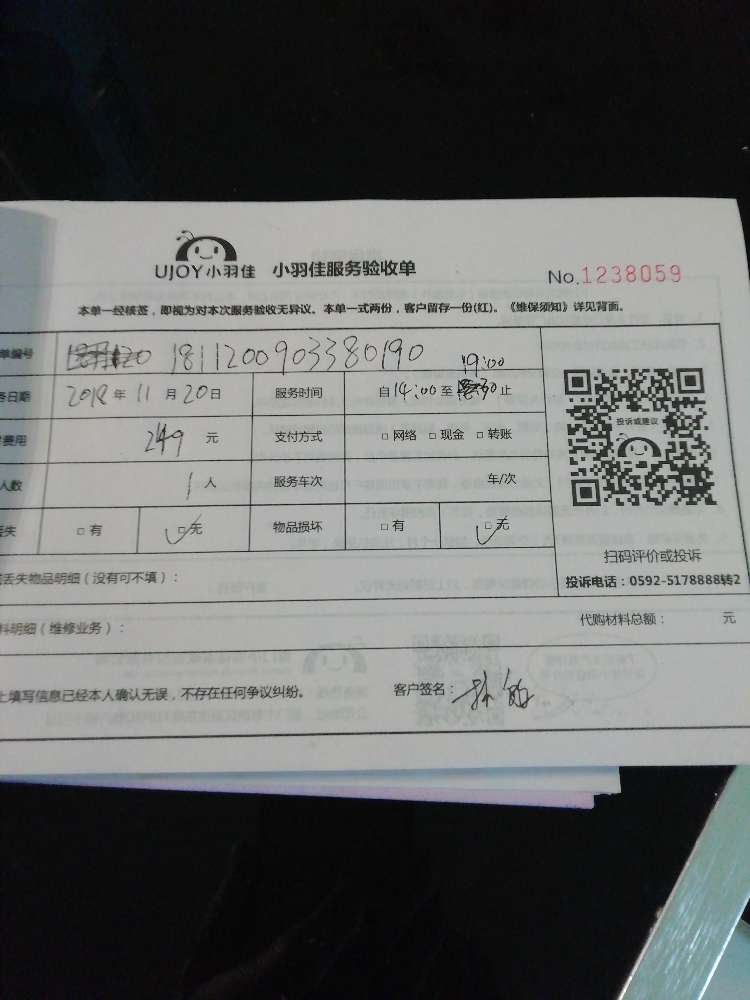 UJOY小羽佳 小羽佳服务验收单 No.1238059
本单一经核签，即视为对本次服务验收无异议。本单一式两份，客户留存一份(红)。《维保须知》详见背面。
单编号 1811200903380190
务日期 2018年11月20日 服务时间 自14:00至19:00止
费用 249元 支付方式 □网络 □现金 □转账
人数 1人 服务车次 车/次
丢失 □有 □无 物品损坏 □有 □无
投诉或建议
扫码评价或投诉
投诉电话：0592-5178888转2
丢失物品明细（没有可不填）：
料明细（维修业务）： 代购材料总额： 元
上填写信息已经本人确认无误，不存在任何争议纠纷。 客户签名：